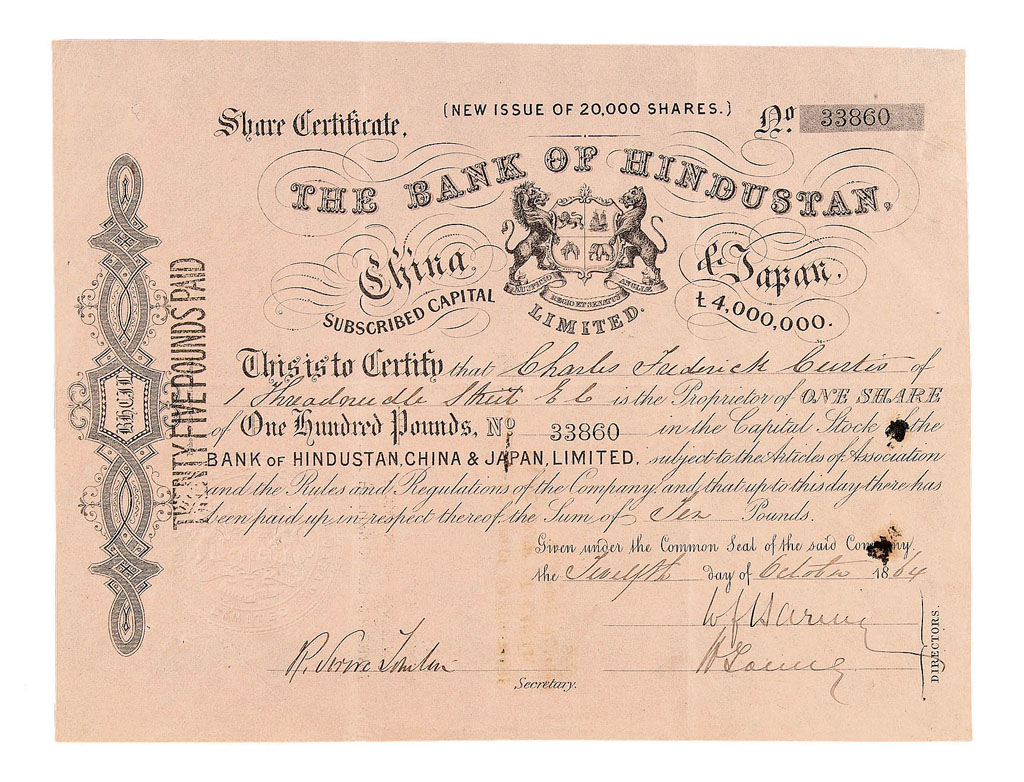 (NEW ISSUE OF 20,000 SHARES.)
Share Certificate,
No. 33860
THE BANK OF HINDUSTAN,
China, & Japan,
AUSPICIO REGIO ET SENATUS ANGLIÆ
LIMITED.
SUBSCRIBED CAPITAL £4,000,000.
This is to Certify that Charles Frederick Curtis of
1 Threadneedle Street E C is the Proprietor of ONE SHARE
of One Hundred Pounds, No 33860 in the Capital Stock of the
BANK OF HINDUSTAN, CHINA & JAPAN, LIMITED, subject to the Articles of Association
and the Rules and Regulations of the Company, and that up to this day there has
been paid up in respect thereof, the Sum of Ten Pounds.
Given under the Common Seal of the said Company,
the Twelfth day of October 1864
DIRECTORS.
Secretary.
TWENTY FIVE POUNDS PAID
BHCJL